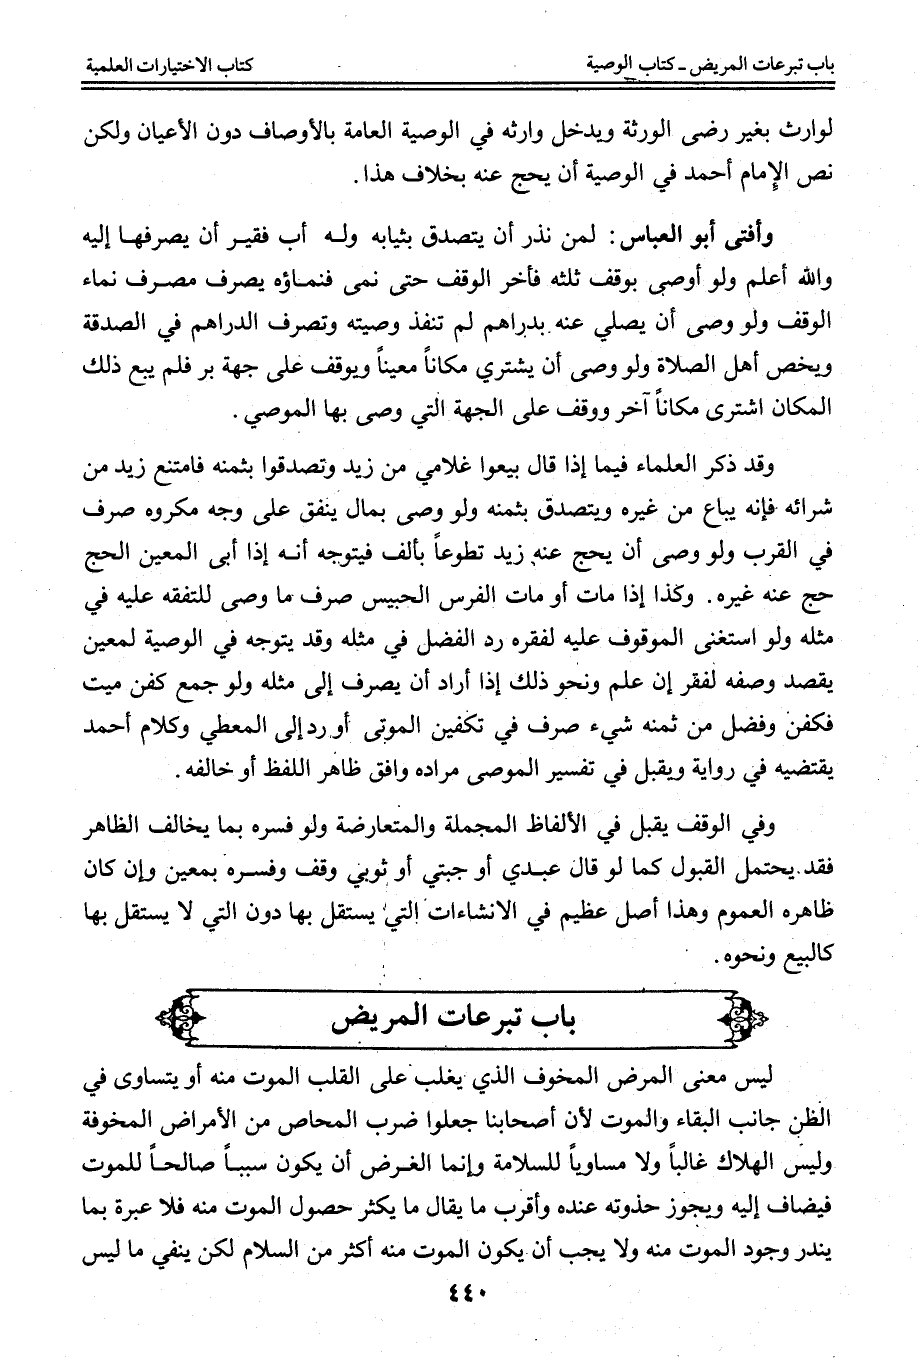 باب تبرعات المريض ـ كتاب الوصية
كتاب الاختيارات العلمية
لوارث بغير رضى الورثة ويدخل وارثه في الوصية العامة بالأوصاف دون الأعيان ولكن
نص الإمام أحمد في الوصية أن يحج عنه بخلاف هذا.
وأفتى أبو العباس: لمن نذر أن يتصدق بثيابه وله أب فقير أن يصرفها إليه
والله أعلم ولو أوصى بوقف ثلثه فأخر الوقف حتى نمى فنماؤه يصرف مصرف نماء
الوقف ولو وصى أن يصلي عنه بدراهم لم تنفذ وصيته وتصرف الدراهم في الصدقة
ويخص أهل الصلاة ولو وصى أن يشتري مكاناً معيناً ويوقف على جهة بر فلم يبع ذلك
المكان اشترى مكاناً آخر ووقف على الجهة التي وصى بها الموصي.
وقد ذكر العلماء فيما إذا قال بيعوا غلامي من زيد وتصدقوا بثمنه فامتنع زيد من
شرائه فإنه يباع من غيره ويتصدق بثمنه ولو وصى بمال ينفق على وجه مكروه صرف
في القرب ولو وصى أن يحج عنه زيد تطوعاً بألف فيتوجه أنه إذا أبى المعين الحج
حج عنه غيره. وكذا إذا مات أو مات الفرس الحبيس صرف ما وصى للتفقه عليه في
مثله ولو استغنى الموقوف عليه لفقره رد الفضل في مثله وقد يتوجه في الوصية لمعين
يقصد وصفه لفقر إن علم ونحو ذلك إذا أراد أن يصرف إلى مثله ولو جمع كفن ميت
فكفن وفضل من ثمنه شيء صرف في تكفين الموتى أو رد إلى المعطي وكلام أحمد
يقتضيه في رواية ويقبل في تفسير الموصى مراده وافق ظاهر اللفظ أو خالفه.
وفي الوقف يقبل في الألفاظ المجملة والمتعارضة ولو فسره بما يخالف الظاهر
فقد يحتمل القبول كما لو قال عبدي أو جبتي أو ثوبي وقف وفسره بمعين وإن كان
ظاهره العموم وهذا أصل عظيم في الانشاءات التي يستقل بها دون التي لا يستقل بها
كالبيع ونحوه.
باب تبرعات المريض
ليس معنى المرض المخوف الذي يغلب على القلب الموت منه أو يتساوى في
الظن جانب البقاء والموت لأن أصحابنا جعلوا ضرب المحاص من الأمراض المخوفة
وليس الهلاك غالباً ولا مساوياً للسلامة وإنما الغرض أن يكون سبباً صالحاً للموت
فيضاف إليه ويجوز حذوته عنده وأقرب ما يقال ما يكثر حصول الموت منه فلا عبرة بما
يندر وجود الموت منه ولا يجب أن يكون الموت منه أكثر من السلام لكن ينفي ما ليس
٤٤٠